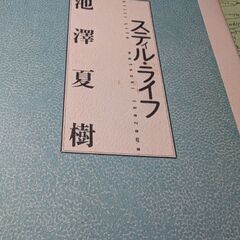 スティル・ライフ
池澤夏樹